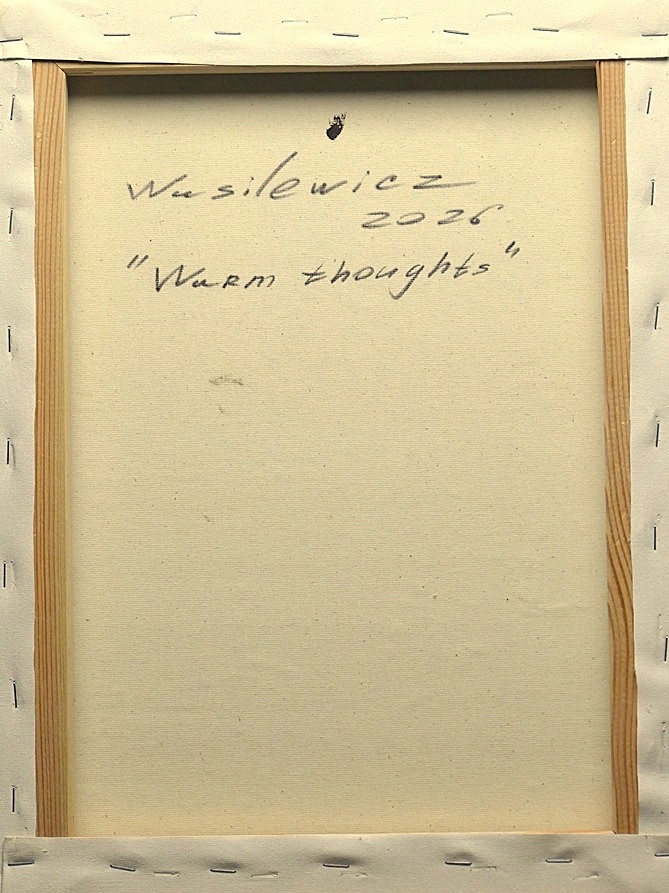 Wasilewicz
2026
"Warm thoughts"